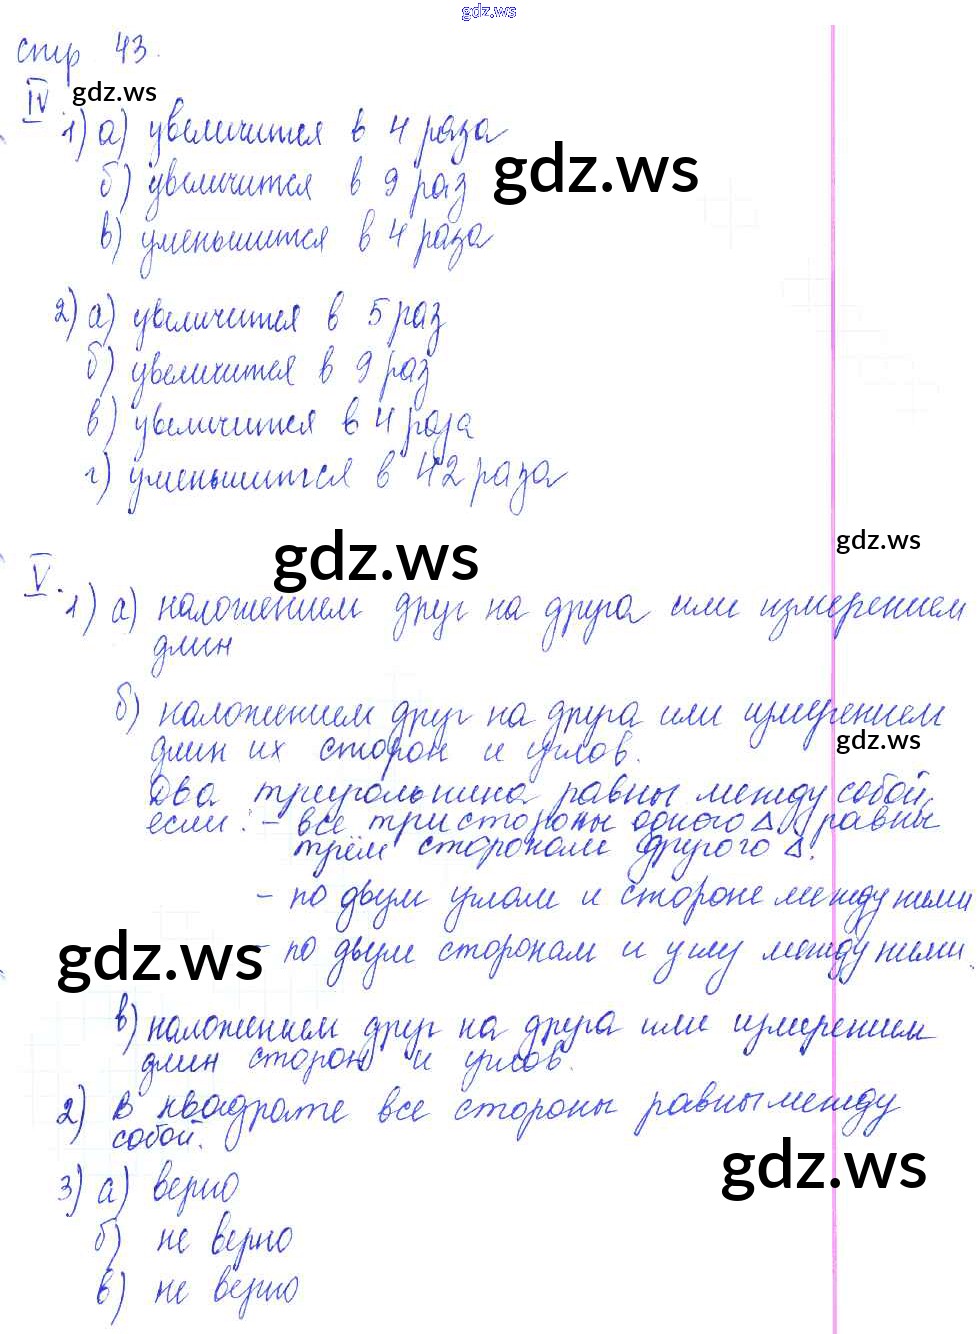 gdz.ws
стр 43.
IV gdz.ws
1) а) увеличится в 4 раза
б) увеличится в 9 раз gdz.ws
в) уменьшится в 4 раза
2) а) увеличится в 5 раз
б) увеличится в 9 раз
в) увеличится в 4 раза
г) уменьшится в 42 раза
gdz.ws gdz.ws
V. 1) а) наложением друг на друга или измерением
длин
б) наложением друг на друга или измерением
длин их сторон и углов. gdz.ws
Два треугольника равны между собой,
если: - все три стороны одного Δ равны
трём сторонам другого Δ.
- по двум углам и стороне между ними
gdz.ws - по двум сторонам и углу между ними.
в) наложением друг на друга или измерением
длин сторон и углов.
2) В квадрате все стороны равны между
собой. gdz.ws
3) а) верно
б) не верно
в) не верно